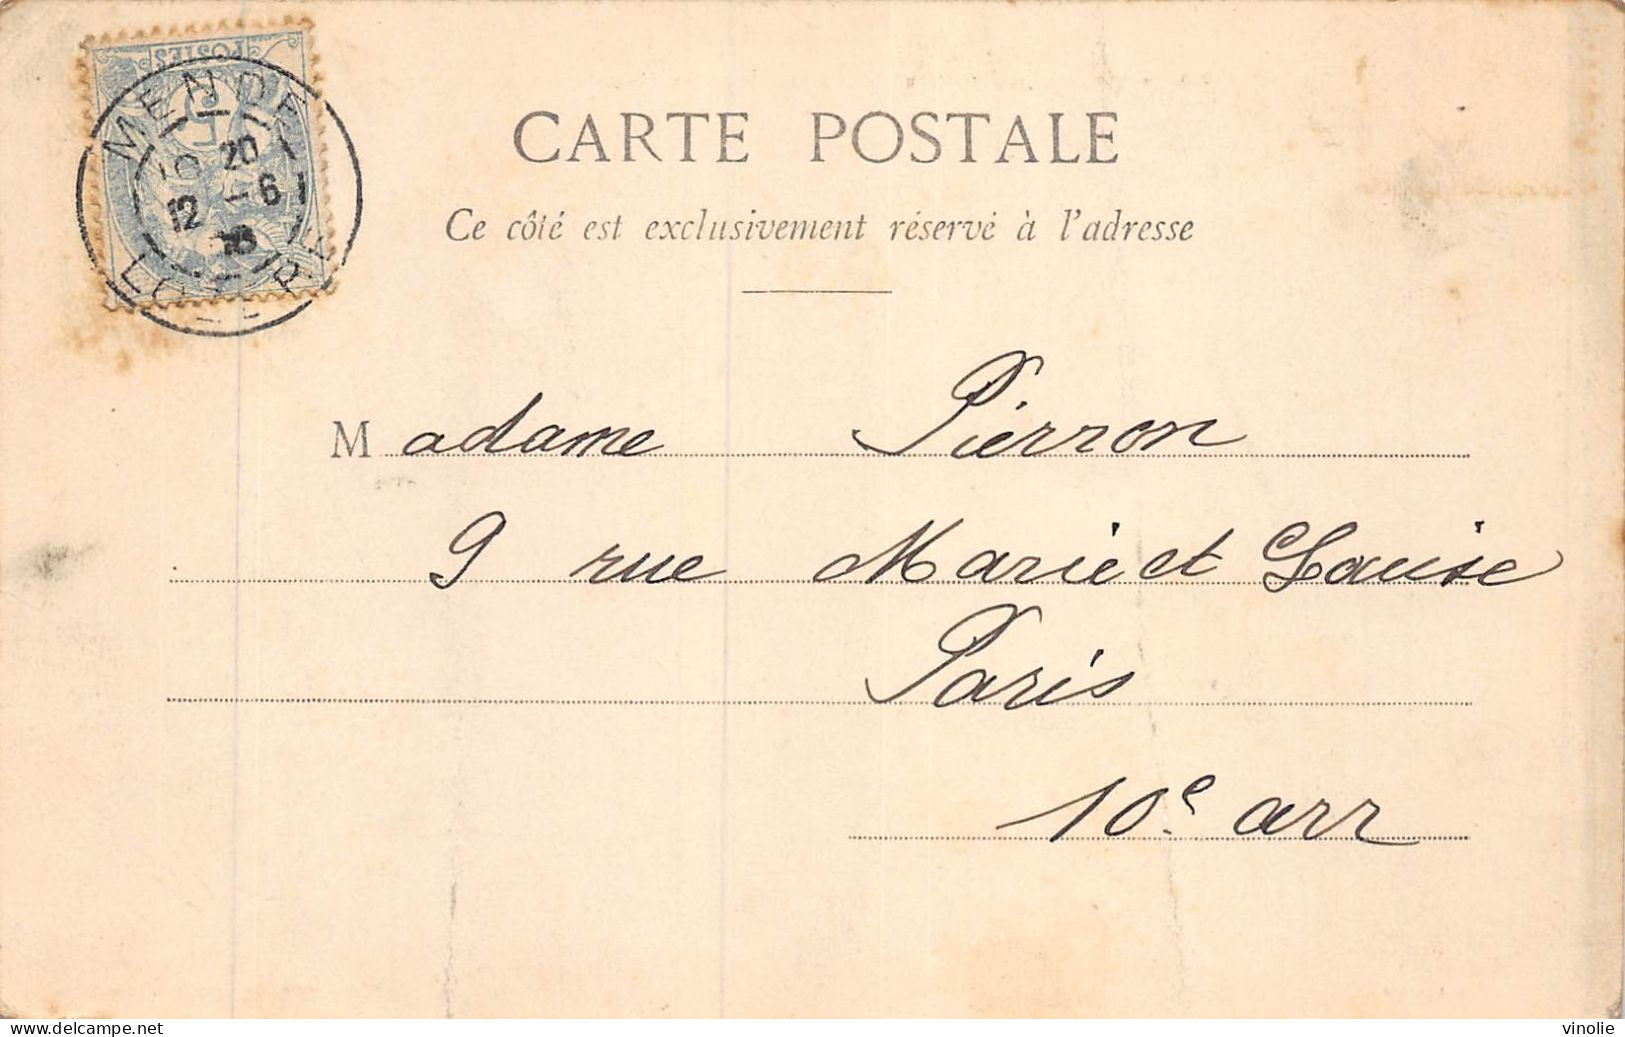 POSTES
MENDE
5 20
12 6
LOZERE
CARTE POSTALE
Ce côté est exclusivement réservé à l'adresse
Madame Pierron
9 rue Marie et Louise
Paris
10e arr
www.delcampe.net
vinolie